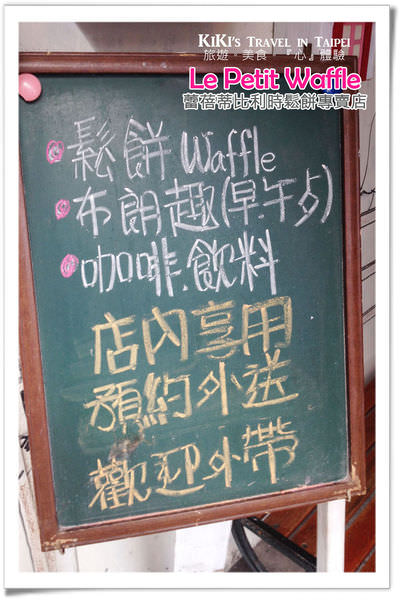 KiKi's Travel in Taipei
旅遊。美食。『心』體驗
Le Petit Waffle
蕾蓓蒂比利時鬆餅專賣店
鬆餅 Waffle
布朗趣(早.午夕)
咖啡.飲料
店內享用
預約外送
歡迎外帶